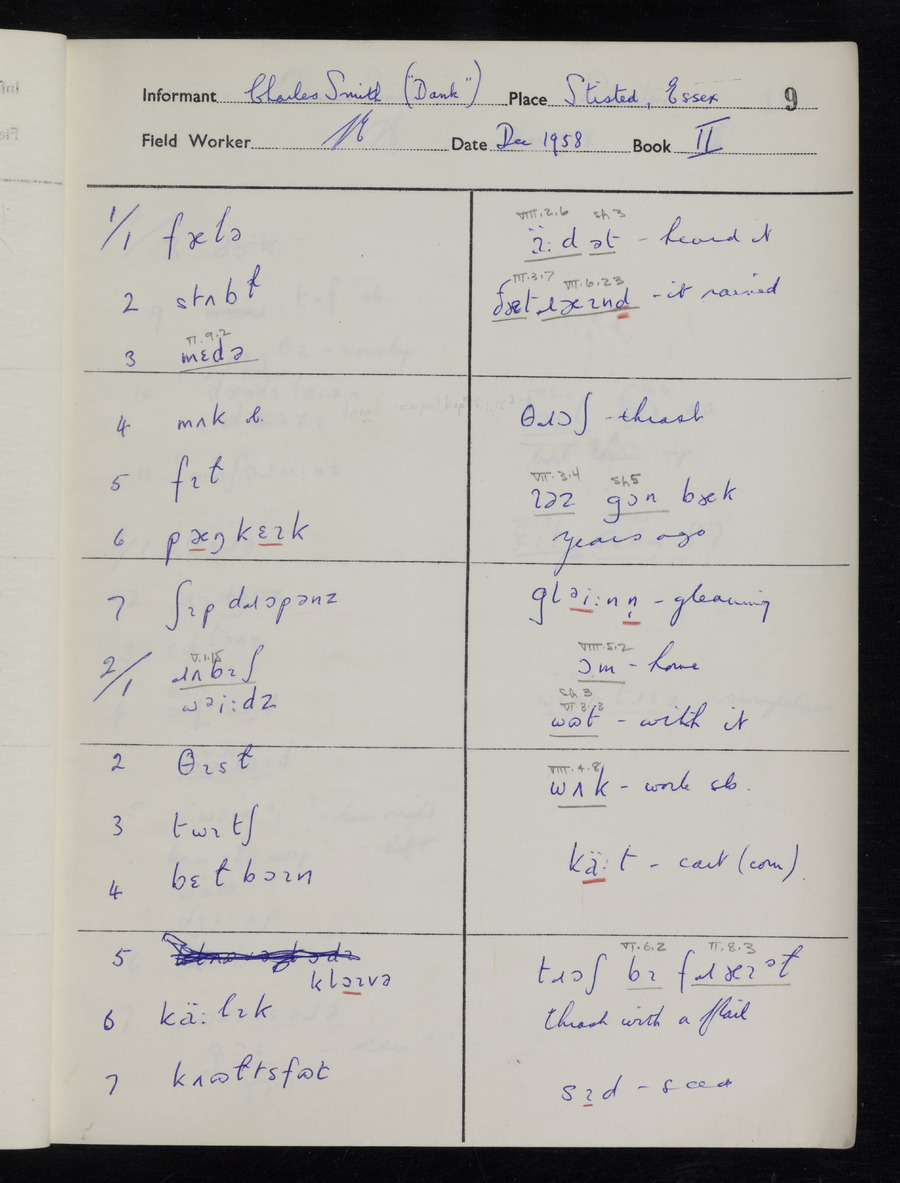 Informant Charles Smith ("Dank") Place Stisted, Essex 9
Field Worker Date Dec 1958 Book II
1/1 fælə
2 stʌbɫ
II.9.2
3 mɛdə
4 mʌk
5 fɪt
6 pæŋkɛɪk
7 ʃɪp dɹɔpənz
V.1.15
2/1 ɹʌbɪʃ
wəi:dz
2 θɪsɫ
3 twɪtʃ
4 bɛɫbɔɪn
5
klɔɪvə
6 kä:lɪk
7
VIII.2.6 sh 3
ä:d ət - heard it
III.3.7 VII.6.23
ðæt ɹæɪnd - it rained
θɹɔʃ - thrash
VII.3.4 sh 5
ɪəz gɔn bæk
years ago
gləi:nn̩ - gleaming
VIII.5.2
ɔm - home
sh 3
V.8.3
wət - with it
VIII.4.8
wʌk - work sb.
kä:t - cart (corn).
VI.6.2 II.8.3
tɹɔʃ bɪ fɹæɪəɫ
thrash with a flail
sɪd - seed